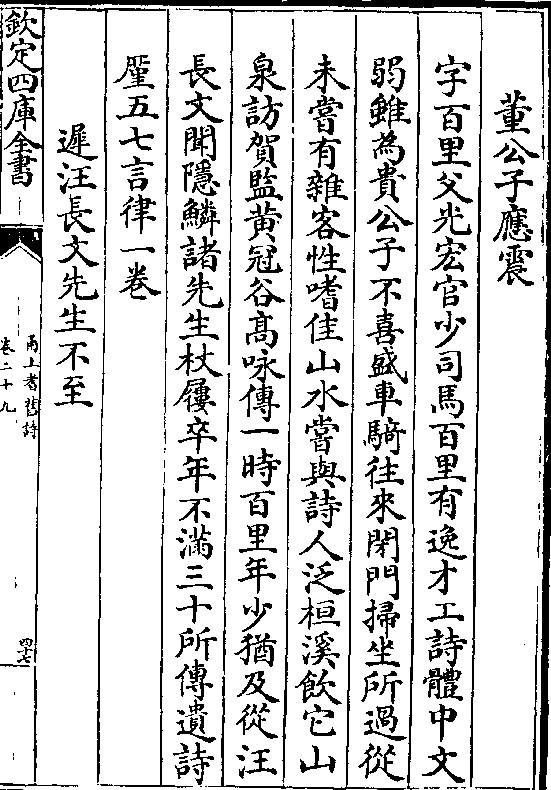 董公子應震
字百里父光宏官少司馬百里有逸才工詩體中文
弱雖為貴公子不喜盛車騎往來閉門掃坐所過從
未嘗有雜客性嗜佳山水嘗與詩人泛桓溪飲它山
泉訪賀監黄冠谷髙咏傳一時百里年少猶及從汪
長文聞隱鱗諸先生杖屨卒年不滿三十所傳遺詩
釐五七言律一卷
遲汪長文先生不至
欽定四庫全書
甬上耆舊詩
卷二十九
四十七